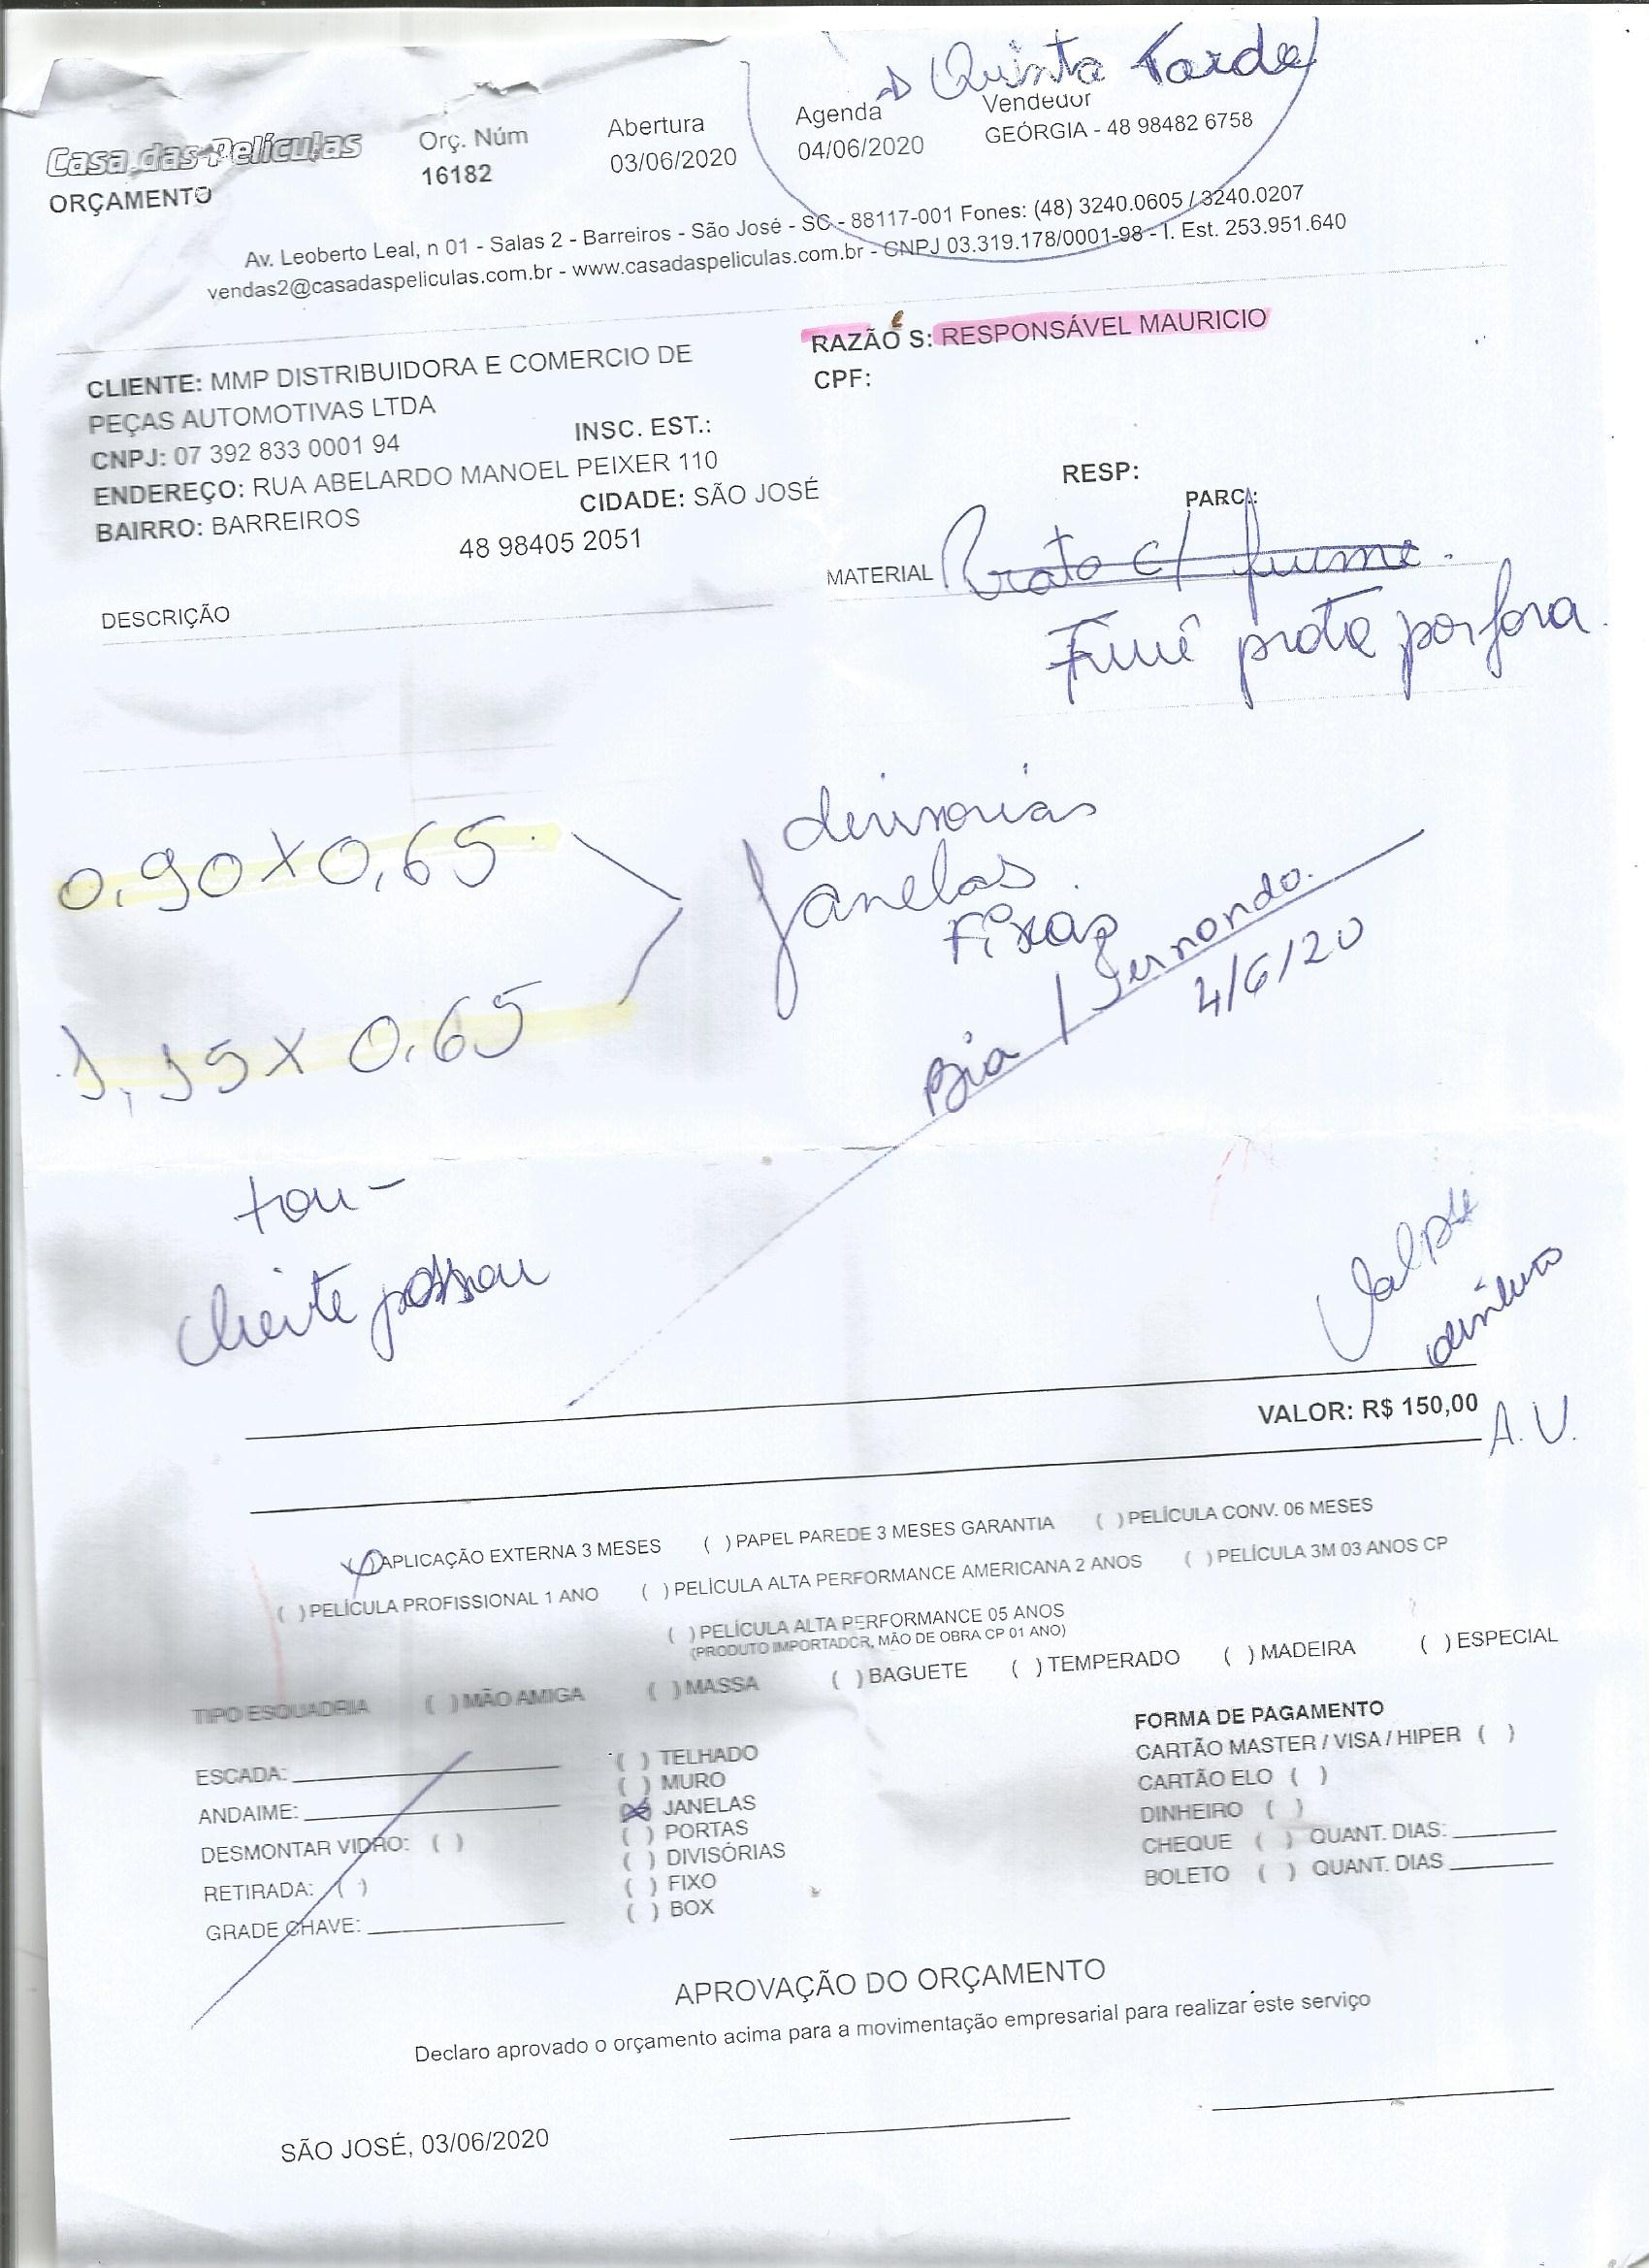 Quinta Tarde
Casa das Películas
ORÇAMENTO
Orç. Núm
16182
Abertura
03/06/2020
Agenda
04/06/2020
Vendedor
GEÓRGIA - 48 98482 6758
Av. Leoberto Leal, n 01 - Salas 2 - Barreiros - São José - SC - 88117-001 Fones: (48) 3240.0605 / 3240.0207
vendas2@casadaspeliculas.com.br - www.casadaspeliculas.com.br - CNPJ 03.319.178/0001-98 - I. Est. 253.951.640
CLIENTE: MMP DISTRIBUIDORA E COMERCIO DE
PEÇAS AUTOMOTIVAS LTDA
CNPJ: 07 392 833 0001 94 INSC. EST.:
ENDEREÇO: RUA ABELARDO MANOEL PEIXER 110
BAIRRO: BARREIROS CIDADE: SÃO JOSÉ
48 98405 2051
RAZÃO S: RESPONSÁVEL MAURICIO
CPF:
RESP:
PARC.:
MATERIAL Prata c/ fume.
Fumê prata por fora.
DESCRIÇÃO
0,90 x 0,65
1,15 x 0.65
divisorias
Janelas
Fixas
Bia / Fernando.
4/6/20
cliente passou
VALOR: R$ 150,00 A.V.
(X) APLICAÇÃO EXTERNA 3 MESES ( ) PAPEL PAREDE 3 MESES GARANTIA ( ) PELÍCULA CONV. 06 MESES
( ) PELÍCULA PROFISSIONAL 1 ANO ( ) PELÍCULA ALTA PERFORMANCE AMERICANA 2 ANOS ( ) PELÍCULA 3M 03 ANOS CP
( ) PELÍCULA ALTA PERFORMANCE 05 ANOS
(PRODUTO IMPORTADOR, MÃO DE OBRA CP 01 ANO)
TIPO ESQUADRIA ( ) MÃO AMIGA ( ) MASSA ( ) BAGUETE ( ) TEMPERADO ( ) MADEIRA ( ) ESPECIAL
ESCADA:
ANDAIME:
DESMONTAR VIDRO: ( )
RETIRADA: ( )
GRADE CHAVE:
( ) TELHADO
( ) MURO
(X) JANELAS
( ) PORTAS
( ) DIVISÓRIAS
( ) FIXO
( ) BOX
FORMA DE PAGAMENTO
CARTÃO MASTER / VISA / HIPER ( )
CARTÃO ELO ( )
DINHEIRO ( )
CHEQUE ( ) QUANT. DIAS:
BOLETO ( ) QUANT. DIAS
APROVAÇÃO DO ORÇAMENTO
Declaro aprovado o orçamento acima para a movimentação empresarial para realizar este serviço
SÃO JOSÉ, 03/06/2020